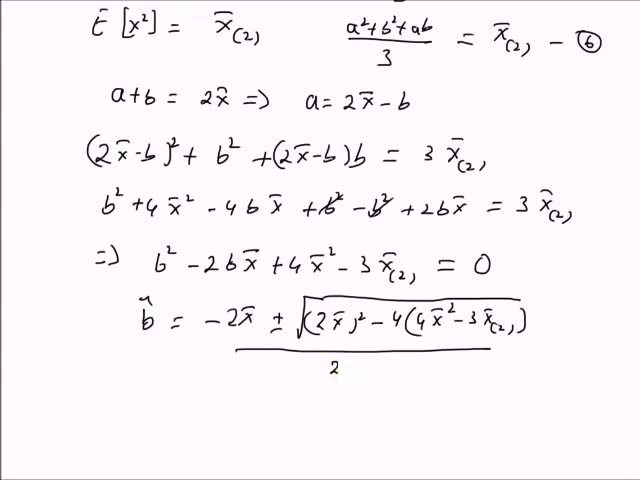 E[x²] = x̄₍₂₎   (a²+b²+ab)/3 = x̄₍₂₎ – ⑥
a+b = 2x̄ => a = 2x̄ – b
(2x̄–b)² + b² + (2x̄–b)b = 3 x̄₍₂₎
b² + 4x̄² – 4bx̄ + b² – b² + 2bx̄ = 3 x̄₍₂₎
=> b² – 2bx̄ + 4x̄² – 3x̄₍₂₎ = 0
b̂ = (–2x̄ ± √((2x̄)² – 4(4x̄² – 3x̄₍₂₎)))/2